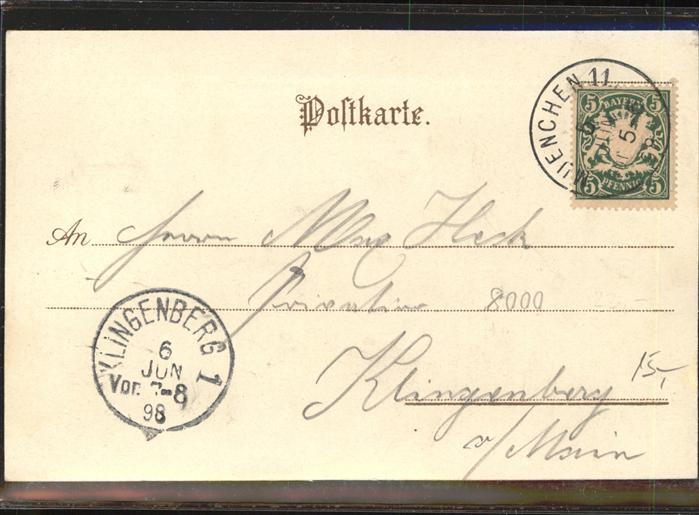 Postkarte.
MUENCHEN 11.
5 BAYERN 5
5 PFENNIG 5
An Herrn Max Heck
Privatier 8000
KLINGENBERG 1
6
JUN
Vor. 7-8
98
Klingenberg 15,-
a/Main